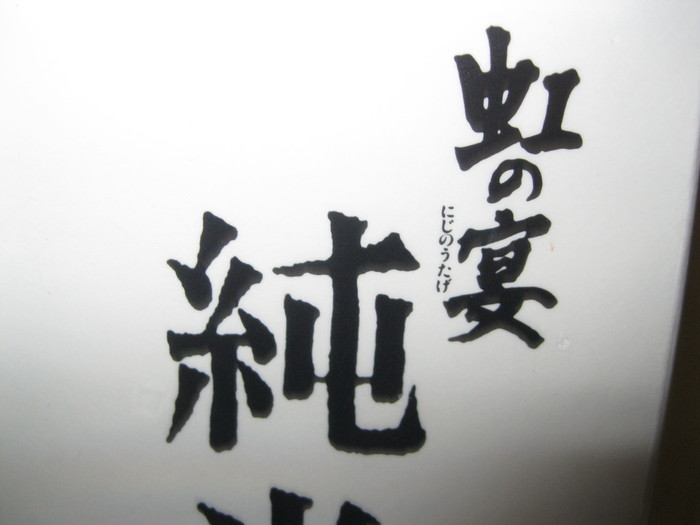 虹の宴
にじのうたげ
純